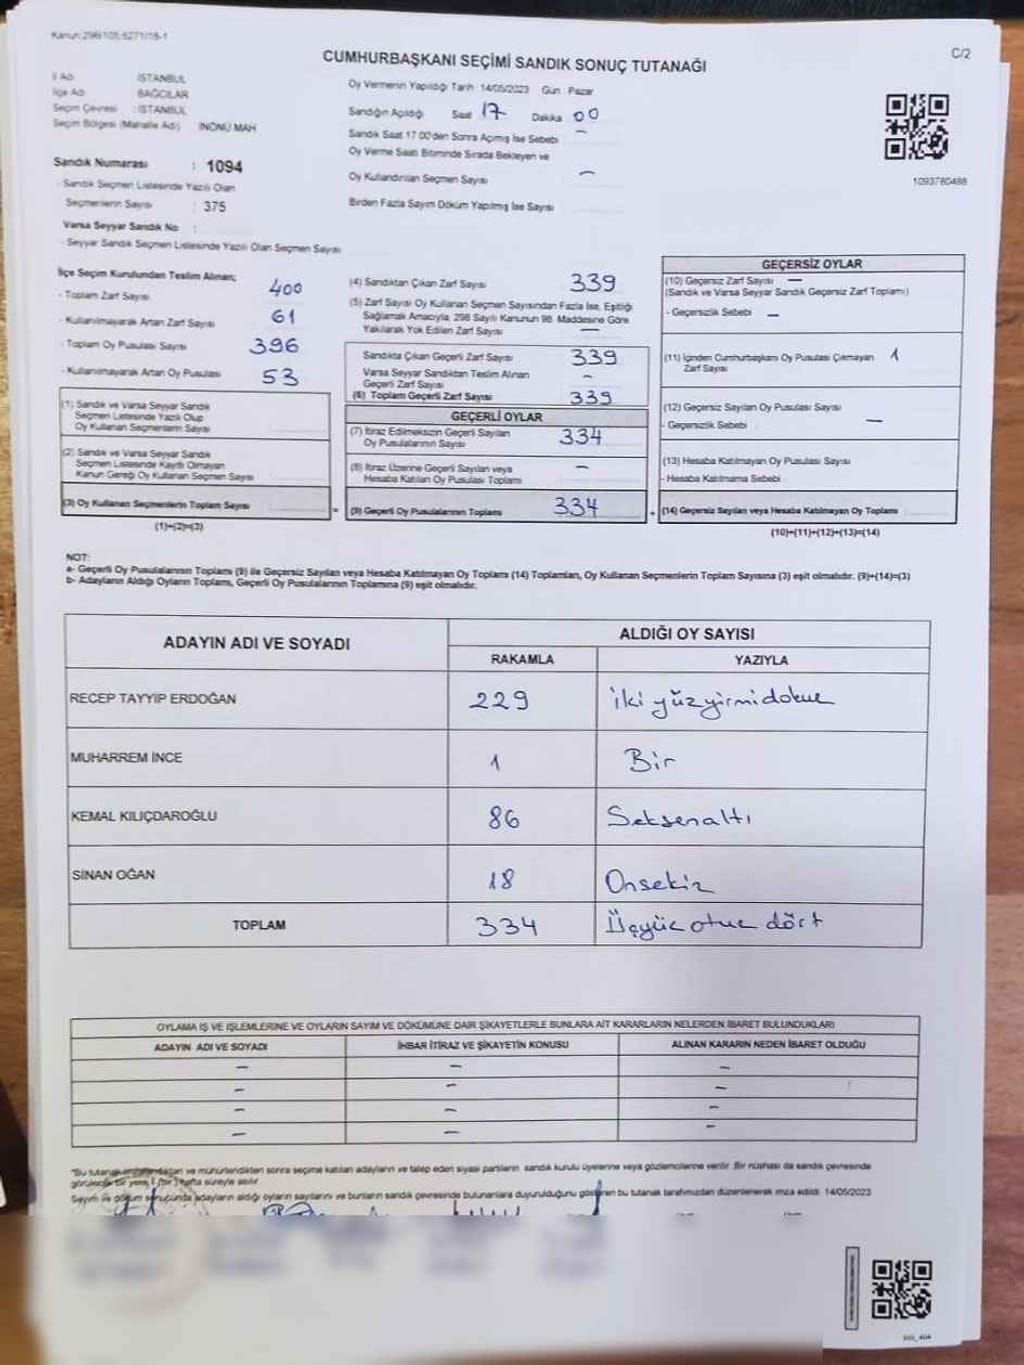 Kanun:298/105;6271/18-1
C/2
CUMHURBAŞKANI SEÇİMİ SANDIK SONUÇ TUTANAĞI
İl Adı : İSTANBUL
İlçe Adı : BAĞCILAR
Seçim Çevresi : İSTANBUL
Seçim Bölgesi (Mahalle Adı) İNÖNÜ MAH
Sandık Numarası : 1094
- Sandık Seçmen Listesinde Yazılı Olan
Seçmenlerin Sayısı : 375
Varsa Seyyar Sandık No :
- Seyyar Sandık Seçmen Listesinde Yazılı Olan Seçmen Sayısı
Oy Vermenin Yapıldığı Tarih 14/05/2023 Gün : Pazar
Sandığın Açıldığı Saat 17 Dakika 00
Sandık Saat 17:00'den Sonra Açılmış İse Sebebi –
Oy Verme Saati Bitiminde Sırada Bekleyen ve
Oy Kullandırılan Seçmen Sayısı –
Birden Fazla Sayım Döküm Yapılmış İse Sayısı
1093780488
İlçe Seçim Kurulundan Teslim Alınan;
- Toplam Zarf Sayısı 400
- Kullanılmayarak Artan Zarf Sayısı 61
- Toplam Oy Pusulası Sayısı 396
- Kullanılmayarak Artan Oy Pusulası 53
(1) Sandık ve Varsa Seyyar Sandık
Seçmen Listesinde Yazılı Olup
Oy Kullanan Seçmenlerin Sayısı
(2) Sandık ve Varsa Seyyar Sandık
Seçmen Listesinde Kayıtlı Olmayan
Kanun Gereği Oy Kullanan Seçmen Sayısı
(3) Oy Kullanan Seçmenlerin Toplam Sayısı
(1)+(2)=(3)
(4) Sandıktan Çıkan Zarf Sayısı 339
(5) Zarf Sayısı Oy Kullanan Seçmen Sayısından Fazla İse, Eşitliği
Sağlamak Amacıyla, 298 Sayılı Kanunun 98. Maddesine Göre
Yakılarak Yok Edilen Zarf Sayısı –
Sandıkta Çıkan Geçerli Zarf Sayısı 339
Varsa Seyyar Sandıktan Teslim Alınan
Geçerli Zarf Sayısı –
(6) Toplam Geçerli Zarf Sayısı 339
GEÇERLİ OYLAR
(7) İtiraz Edilmeksizin Geçerli Sayılan
Oy Pusulalarının Sayısı 334
(8) İtiraz Üzerine Geçerli Sayılan veya
Hesaba Katılan Oy Pusulası Toplamı –
= (9) Geçerli Oy Pusulalarının Toplamı 334
GEÇERSİZ OYLAR
(10) Geçersiz Zarf Sayısı –
(Sandık ve Varsa Seyyar Sandık Geçersiz Zarf Toplamı)
- Geçersizlik Sebebi –
(11) İçinden Cumhurbaşkanı Oy Pusulası Çıkmayan 1
Zarf Sayısı
(12) Geçersiz Sayılan Oy Pusulası Sayısı
- Geçersizlik Sebebi –
(13) Hesaba Katılmayan Oy Pusulası Sayısı
- Hesaba Katılmama Sebebi
+ (14) Geçersiz Sayılan veya Hesaba Katılmayan Oy Toplamı
(10)+(11)+(12)+(13)=(14)
NOT:
a- Geçerli Oy Pusulalarının Toplamı (9) ile Geçersiz Sayılan veya Hesaba Katılmayan Oy Toplamı (14) Toplamları, Oy Kullanan Seçmenlerin Toplam Sayısına (3) eşit olmalıdır. (9)+(14)=(3)
b- Adayların Aldığı Oyların Toplamı, Geçerli Oy Pusulalarının Toplamına (9) eşit olmalıdır.
ADAYIN ADI VE SOYADI ALDIĞI OY SAYISI
RAKAMLA YAZIYLA
RECEP TAYYİP ERDOĞAN 229 İki yüzyirmidokuz
MUHARREM İNCE 1 Bir
KEMAL KILIÇDAROĞLU 86 Seksenaltı
SİNAN OĞAN 18 Onsekiz
TOPLAM 334 Üçyüz otuz dört
OYLAMA İŞ VE İŞLEMLERİNE VE OYLARIN SAYIM VE DÖKÜMÜNE DAİR ŞİKAYETLERLE BUNLARA AİT KARARLARIN NELERDEN İBARET BULUNDUKLARI
ADAYIN ADI VE SOYADI İHBAR İTİRAZ VE ŞİKAYETİN KONUSU ALINAN KARARIN NEDEN İBARET OLDUĞU
– – –
– – –
– – –
– – –
*Bu tutanak imzalandıktan ve mühürlendikten sonra seçime katılan adayların ve talep eden siyasi partilerin sandık kurulu üyelerine veya gözlemcilerine verilir. Bir nüshası da sandık çevresinde
görülecek bir yere 1 (bir) hafta süreyle asılır.
Sayım ve döküm sonucunda adayların aldığı oyların sayılarını ve bunların sandık çevresinde bulunanlara duyurulduğunu gösteren bu tutanak tarafımızdan düzenlenerek imza edildi. 14/05/2023